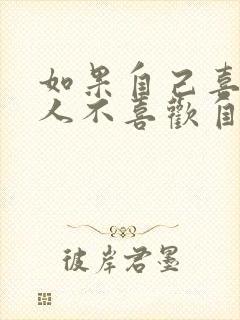 如果自己喜
人不喜歡自
彼岸君墨